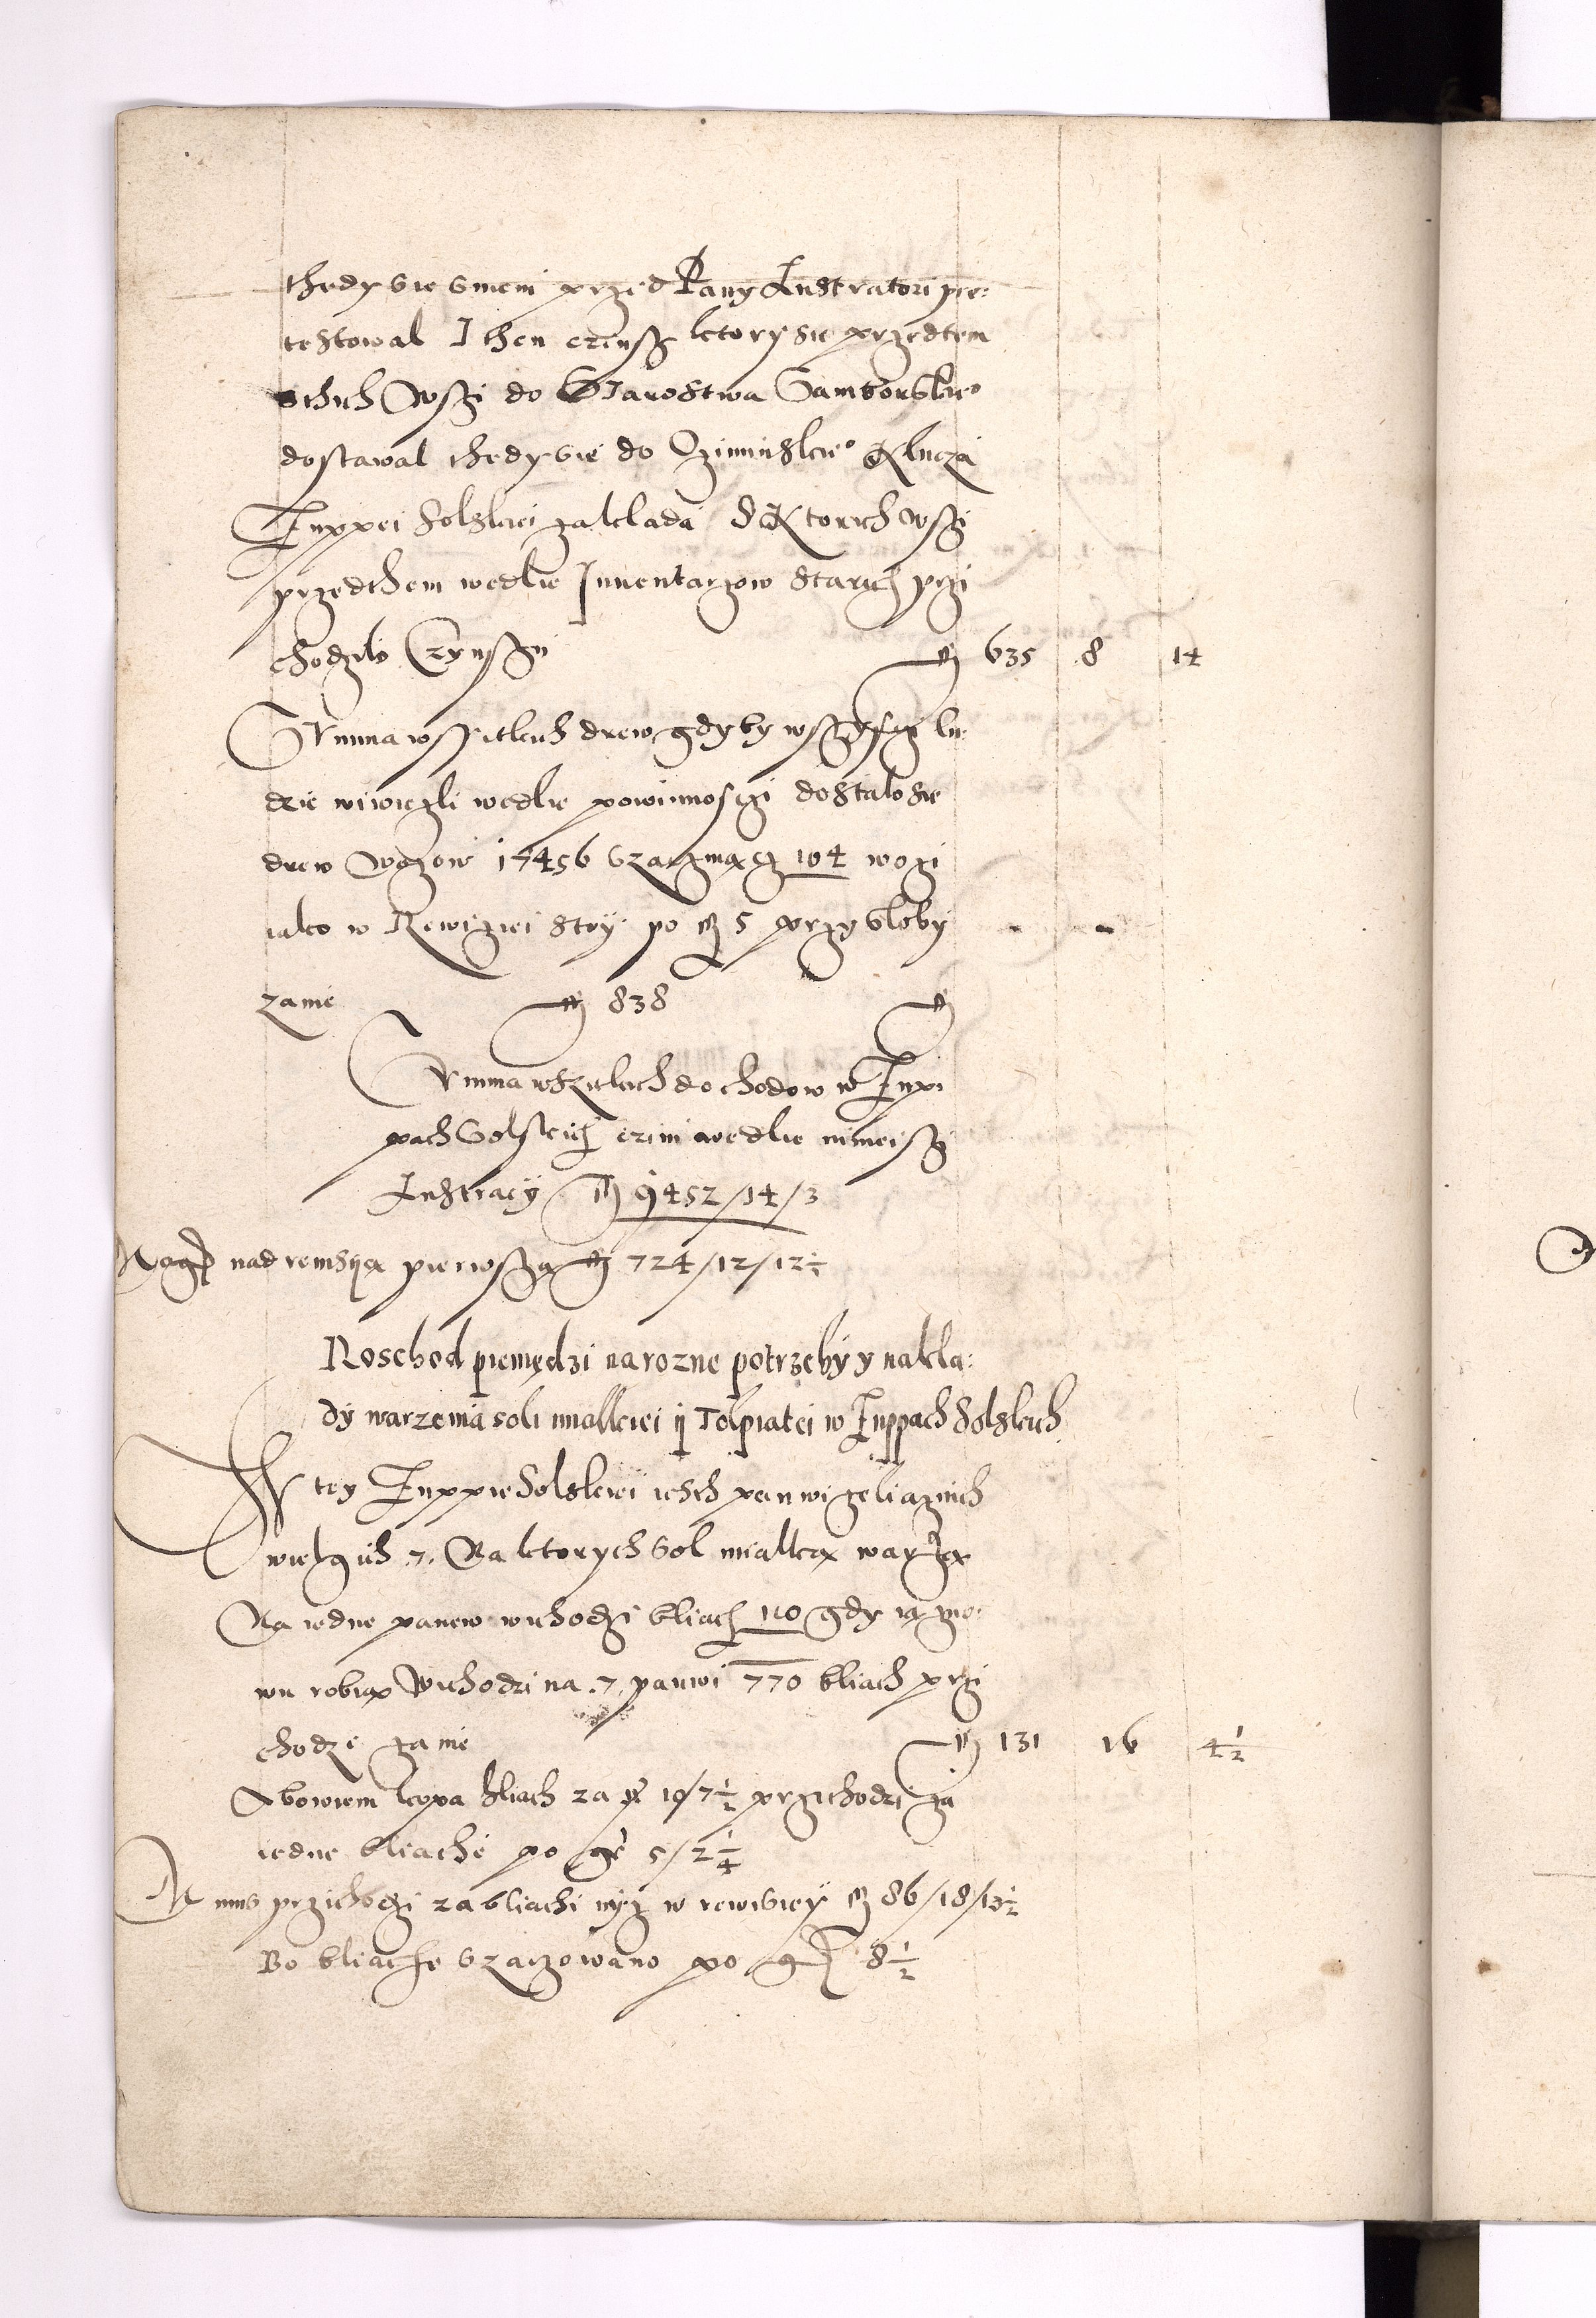 thedy sie smem przed Pany Lustratori pro-
testowal I then czinsz ktory sie przedtem
s tich Wszi do Starostwa Samborskie°
dostawal thedy sie do Oziminskie° Klucza
Zuppei Solskiei zaklada S Ktorich Wszi
przedthem wedlie Inuentarzow starich przi
chodzilo Czynszu ƒ 635 8 14
Summa wszitkich drew gdyby wszyscy lu-
dzie wiwiezli wedlie powinnosczi dostalo sie
drew Wozow 17456 Szaczuiącz 104 wozi
iako w Rewiziei stoy po ƒ 5 przysloby
za nie ƒ 838 ƒ
Summa wszitkich dochodow w Zupp
pach Solskich czini wedlie ninieiszi
Lustraciy ƒ 9452/14/3
nad remsyą pierwszą ƒ 724/12/12½
Roschod pieniędzi na rozne potrzeby y nakla-
dy warzenia soli mialkiei ÿ Tolpiatei w Zuppach Solskich
W tey Zuppie Solskiei iesth panwi zeliaznich
wielgich 7. Na ktorych Sol mialką warzą
Na iedne panew wichodzi bliach 110 gdy ią zno-
wu robią Wichodzi na 7 panwi 770 bliach przi
chodzi za nie ƒ 131 16 4½
Abowiem kopa bliach za ƒ 10/7½ przichodzi za
iedne bliache po gr 5/2¼
Minus przichodzi za bliachi niz w rewisiey ƒ 86/18/13½
Bo bliache Szaczowano po gr 8½